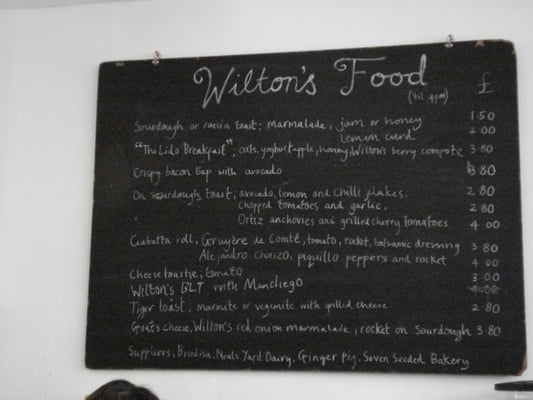 Wilton's Food £
('til 4pm)
Sourdough or raisin toast; marmalade, jam or honey 1.50
lemon curd 2.00
"The Lido Breakfast"; oats, yoghurt, apple, honey, Wilton's berry compote 3.80
Crispy bacon bap with avocado 3.80
On sourdough toast; avocado, lemon and chilli flakes. 2.80
chopped tomatoes and garlic. 2.80
Ortiz anchovies and grilled cherry tomatoes 4.00
Ciabatta roll, Gruyère de Comté, tomato, rocket, balsamic dressing 3.80
Alejandro chorizo, piquillo peppers and rocket 4.00
Cheese toastie; tomato 3.00
Wilton's BLT with Manchego 4.00
Tiger toast; marmite or vegemite with grilled cheese 2.80
Goats cheese, Wilton's red onion marmalade, rocket on Sourdough 3.80
Suppliers, Brindisa, Neals Yard Dairy, Ginger Pig, Seven Seeded Bakery